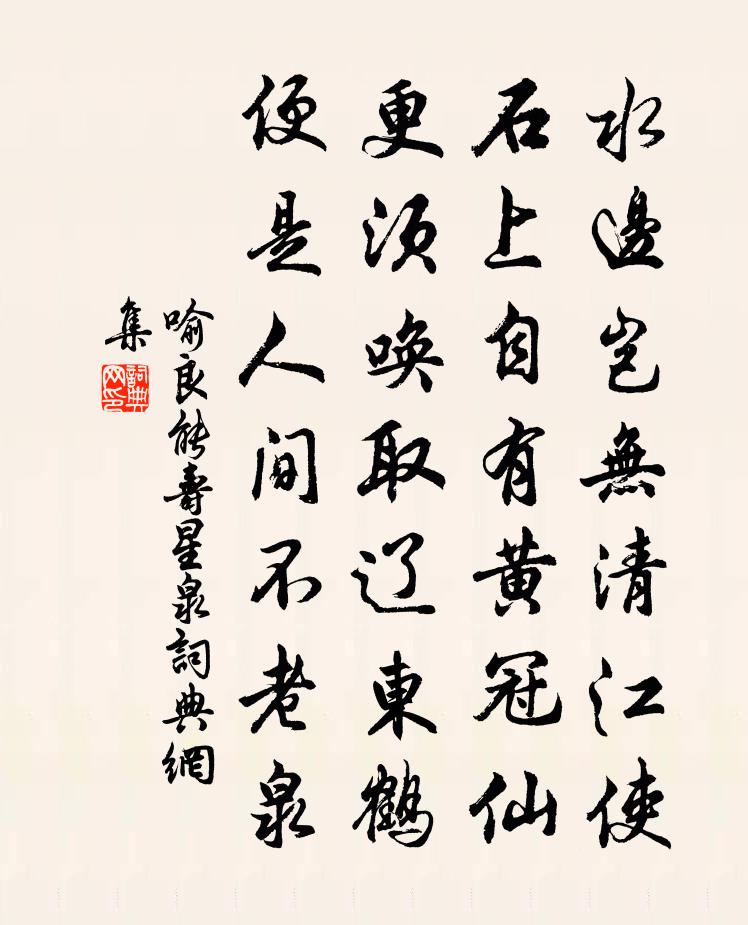 水邊豈無清江使
石上自有黃冠仙
更須喚取辽東鶴
便是人間不老泉
喻良能壽星泉詞典網
集
詞典
网印